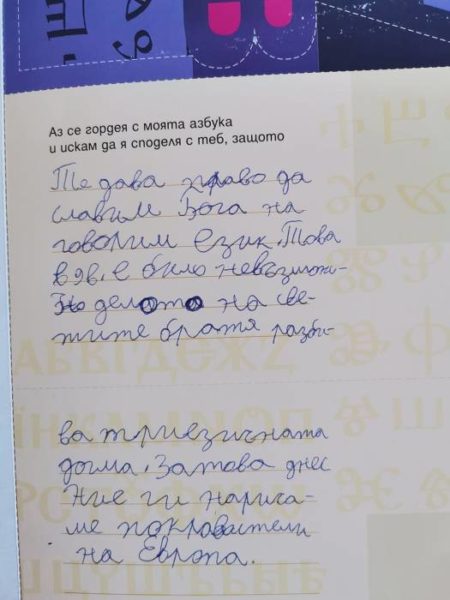 Аз се гордея с моята азбука
и искам да я споделя с теб, защото
Те дава право да
славим Бога на
говорим език. Това
в 9в. е било невъзмож-
но делото на све-
тите братя разби-
ва триезичната
догма. Затова днес
Ние ги нарича-
ме покровители
на Европа.